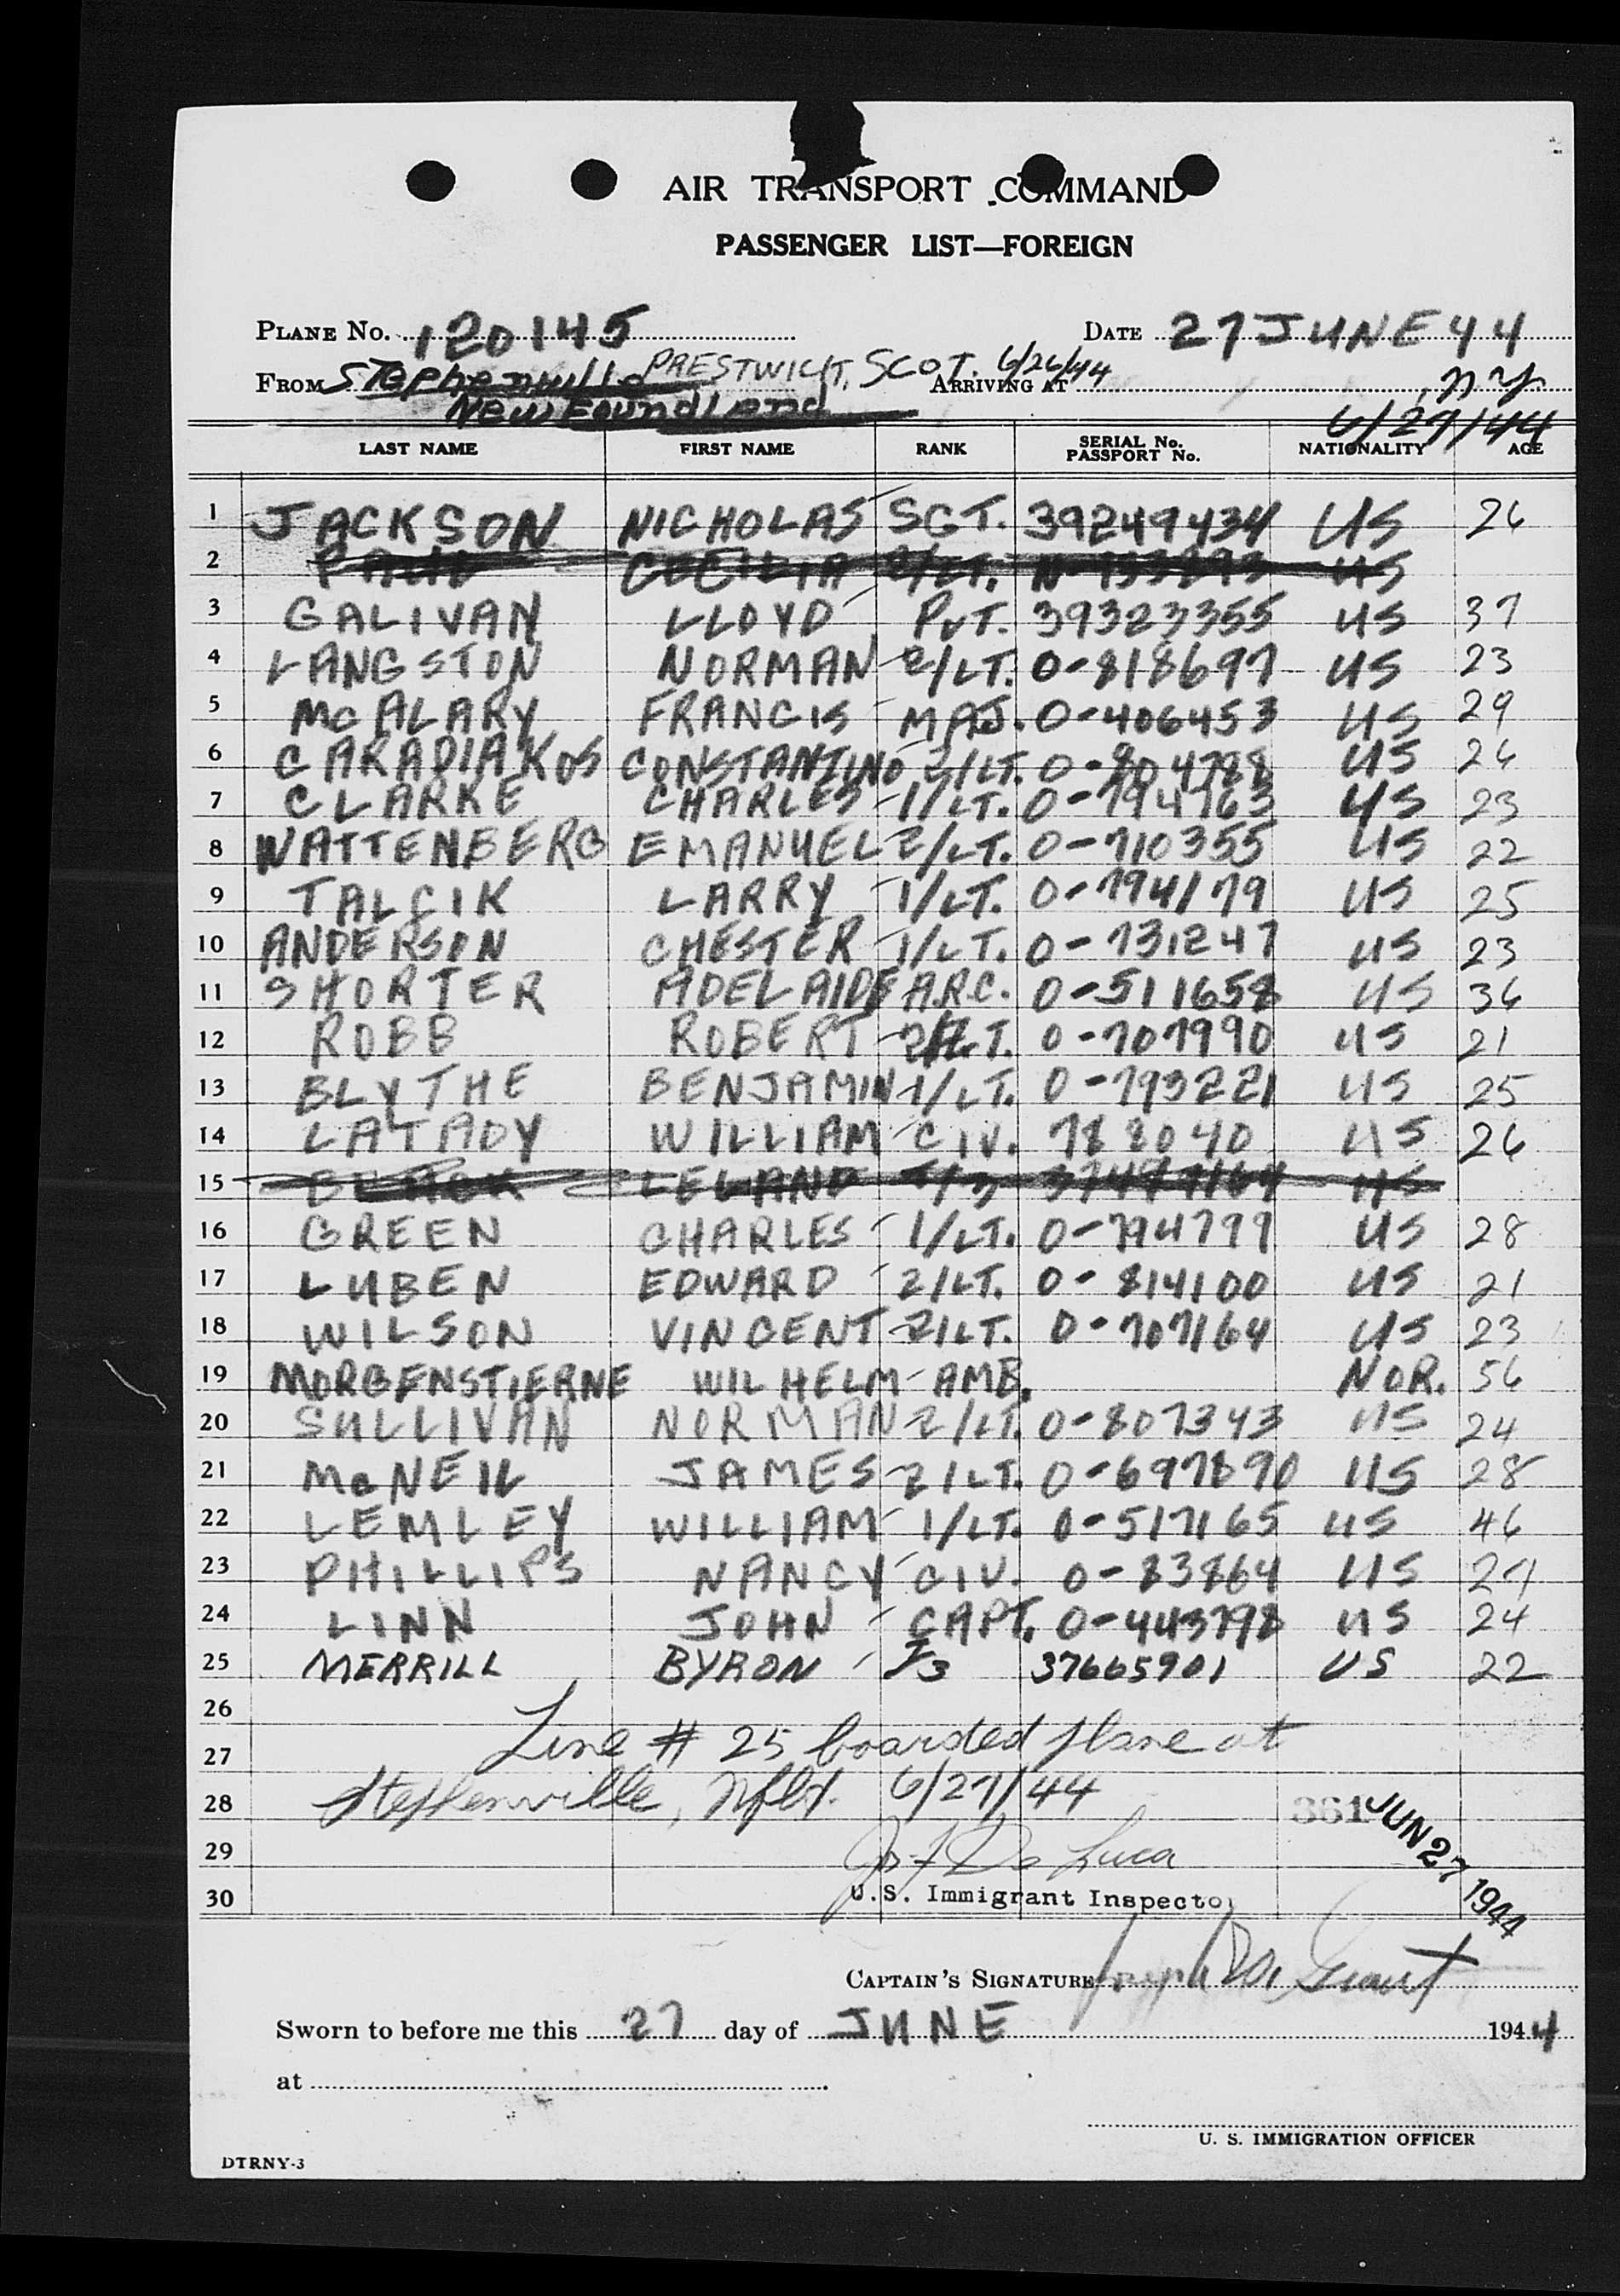 AIR TRANSPORT COMMAND
PASSENGER LIST—FOREIGN
PLANE No. 120145 DATE 27 JUNE 44
FROM Stephenville PRESTWICK, SCOT. 6/26/44 ARRIVING AT , NY
Newfoundland 6/27/44
LAST NAME FIRST NAME RANK SERIAL No. PASSPORT No. NATIONALITY AGE
1 JACKSON NICHOLAS SGT. 39249434 US 26
2 CECILIA 2/LT. US
3 GALIVAN LLOYD PVT. 39323355 US 37
4 LANGSTON NORMAN 2/LT. 0-818697 US 23
5 McALARY FRANCIS MAJ. 0-406453 US 29
6 CARADIAKOS CONSTANTINO 2/LT. 0-804788 US 26
7 CLARKE CHARLES 1/LT. 0-794763 US 23
8 WATTENBERG EMANUEL 2/LT. 0-710355 US 22
9 TALCIK LARRY 1/LT. 0-794179 US 25
10 ANDERSON CHESTER 1/LT. 0-731247 US 23
11 SHORTER ADELAIDE A.R.C. 0-511658 US 36
12 ROBB ROBERT 2/LT. 0-707990 US 21
13 BLYTHE BENJAMIN 1/LT. 0-793221 US 25
14 LATADY WILLIAM CIV. 788040 US 26
15 BLACK LELAND T/3 US
16 GREEN CHARLES 1/LT. 0-794799 US 28
17 LUBEN EDWARD 2/LT. 0-814100 US 21
18 WILSON VINCENT 2/LT. 0-707164 US 23
19 MORGENSTIERNE WILHELM AMB. NOR. 56
20 SULLIVAN NORMAN 2/LT. 0-807343 US 24
21 McNEIL JAMES 2/LT. 0-697890 US 28
22 LEMLEY WILLIAM 1/LT. 0-517165 US 46
23 PHILLIPS NANCY CIV. 0-83864 US 27
24 LINN JOHN CAPT. 0-443798 US 24
25 MERRILL BYRON T/3 37665901 US 22
26
27 Line # 25 boarded plane at
28 Stephenville, Nfld. 6/27/44 361 JUN 27 1944
29 Jos F De Luca
30 U.S. Immigrant Inspector
CAPTAIN'S SIGNATURE Joseph Grant
Sworn to before me this 27 day of JUNE 1944
at
U. S. IMMIGRATION OFFICER
DTRNY-3